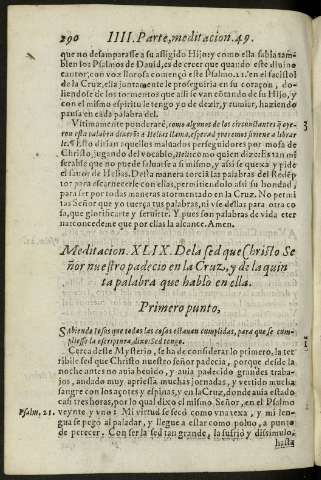 290 IIII. Parte, meditacion. 49.
que no desamparasse a su afligido Hijo: y como ella sabia tam-
bien los Psalmos de Dauid, es de creer que quando este diuino
cantor, con voz llorosa començó este Psalmo. 21. en el facistol
de la Cruz, ella juntamente le proseguiria en su coraçon, do-
liendose de los tormentos que assi le van cõtando de su Hijo, y
con el mismo espiritu le tengo yo de dezir, y rumiar, haziendo
pausa en cada palabra del.
Vltimamente ponderarè, como algunos de los circunstantes oye-
ron esta palabra dixerõ: a Helias llama, esperad y veremos si viene a librar
le. Esto dirian aquellos maluados perseguidores por mosa de
Christo, jugando del vocablo, Heli: como quien dize: Es tan mi
serable que no puede saluarse a si mismo, y assi se quexa y pide
el fauor de Helias. Desta manera torcia las palabras del Redẽp
tor para escarnecerle con ellas, permitiendolo assi su bondad,
para ser por todas maneras atormentado en la Cruz. No permi
tas Señor que yo tuerça tus palabras, ni vse dellas para otra co
sa, que glorificarte y seruirte. Y pues son palabras de vida eter
na: concedeme que por ellas la alcance. Amen.
3
Meditacion. XLIX. De la sed que Christo Se
ñor nuestro padecio en la Cruz, y de la quin
ta palabra que hablo en ella.
Primero punto,
Sabiendo Iesus que todas las cosas estauan cumplidas, para que se cum-
pliesse la escriptura, dixo: Sed tengo.
1
Cerca deste Mysterio, se ha de considerar lo primero, la ter
rible sed que Christo nuestro señor padecia, porque desde la
noche antes no auia beuido, y auia padecido grandes traba-
jos, andado muy apriessa muchas jornadas, y vertido mucha
sangre con los açotes y espinas, y en la Cruz, donde auia estado
casi tres horas, por lo qual dixo el mismo Señor, en el Psalmo
Psalm. 21. veynte y vno: Mi virtud se secó como vna texa, y mi len-
gua se pegó al paladar, y llegue a estar como poluo, a punto
de perecer. Con ser la sed tan grande, la sufrió y dissimulo,
hasta